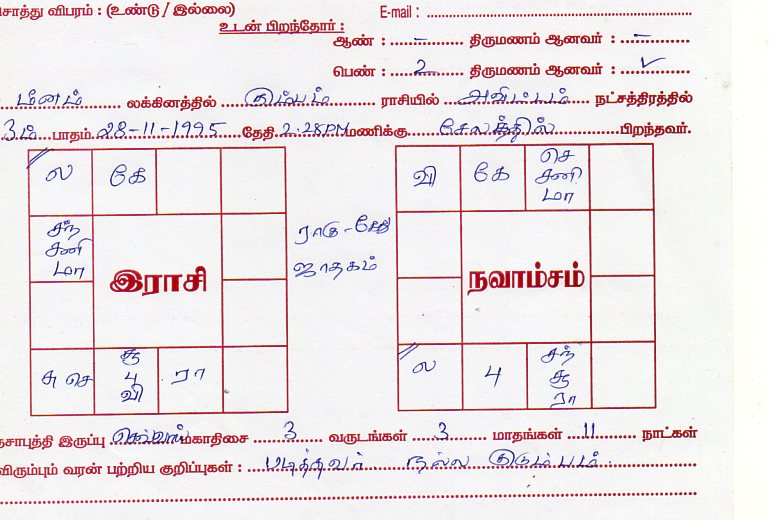 சொத்து விபரம் : (உண்டு / இல்லை) E-mail :
உடன் பிறந்தோர் :
ஆண் : – திருமணம் ஆனவர் : –
பெண் : 2 திருமணம் ஆனவர் : ✓
மீனம் லக்கினத்தில் கும்பம் ராசியில் அவிட்டம் நட்சத்திரத்தில்
3ம் பாதம் 28-11-1995 தேதி 2.28PM மணிக்கு சேலத்தில் பிறந்தவர்.
ல கே
சந் சனி மா
இராசி
சு செ சூ 4 வி ரா
ராகு - கேது
ஜாதகம்
வி கே செ சனி மா
நவாம்சம்
ல 4 சந் சூ ரா
தசாபுத்தி இருப்பு செவ்வாய் மகாதிசை 3 வருடங்கள் 3 மாதங்கள் 11 நாட்கள்
விரும்பும் வரன் பற்றிய குறிப்புகள் : படித்தவர் நல்ல குடும்பம்